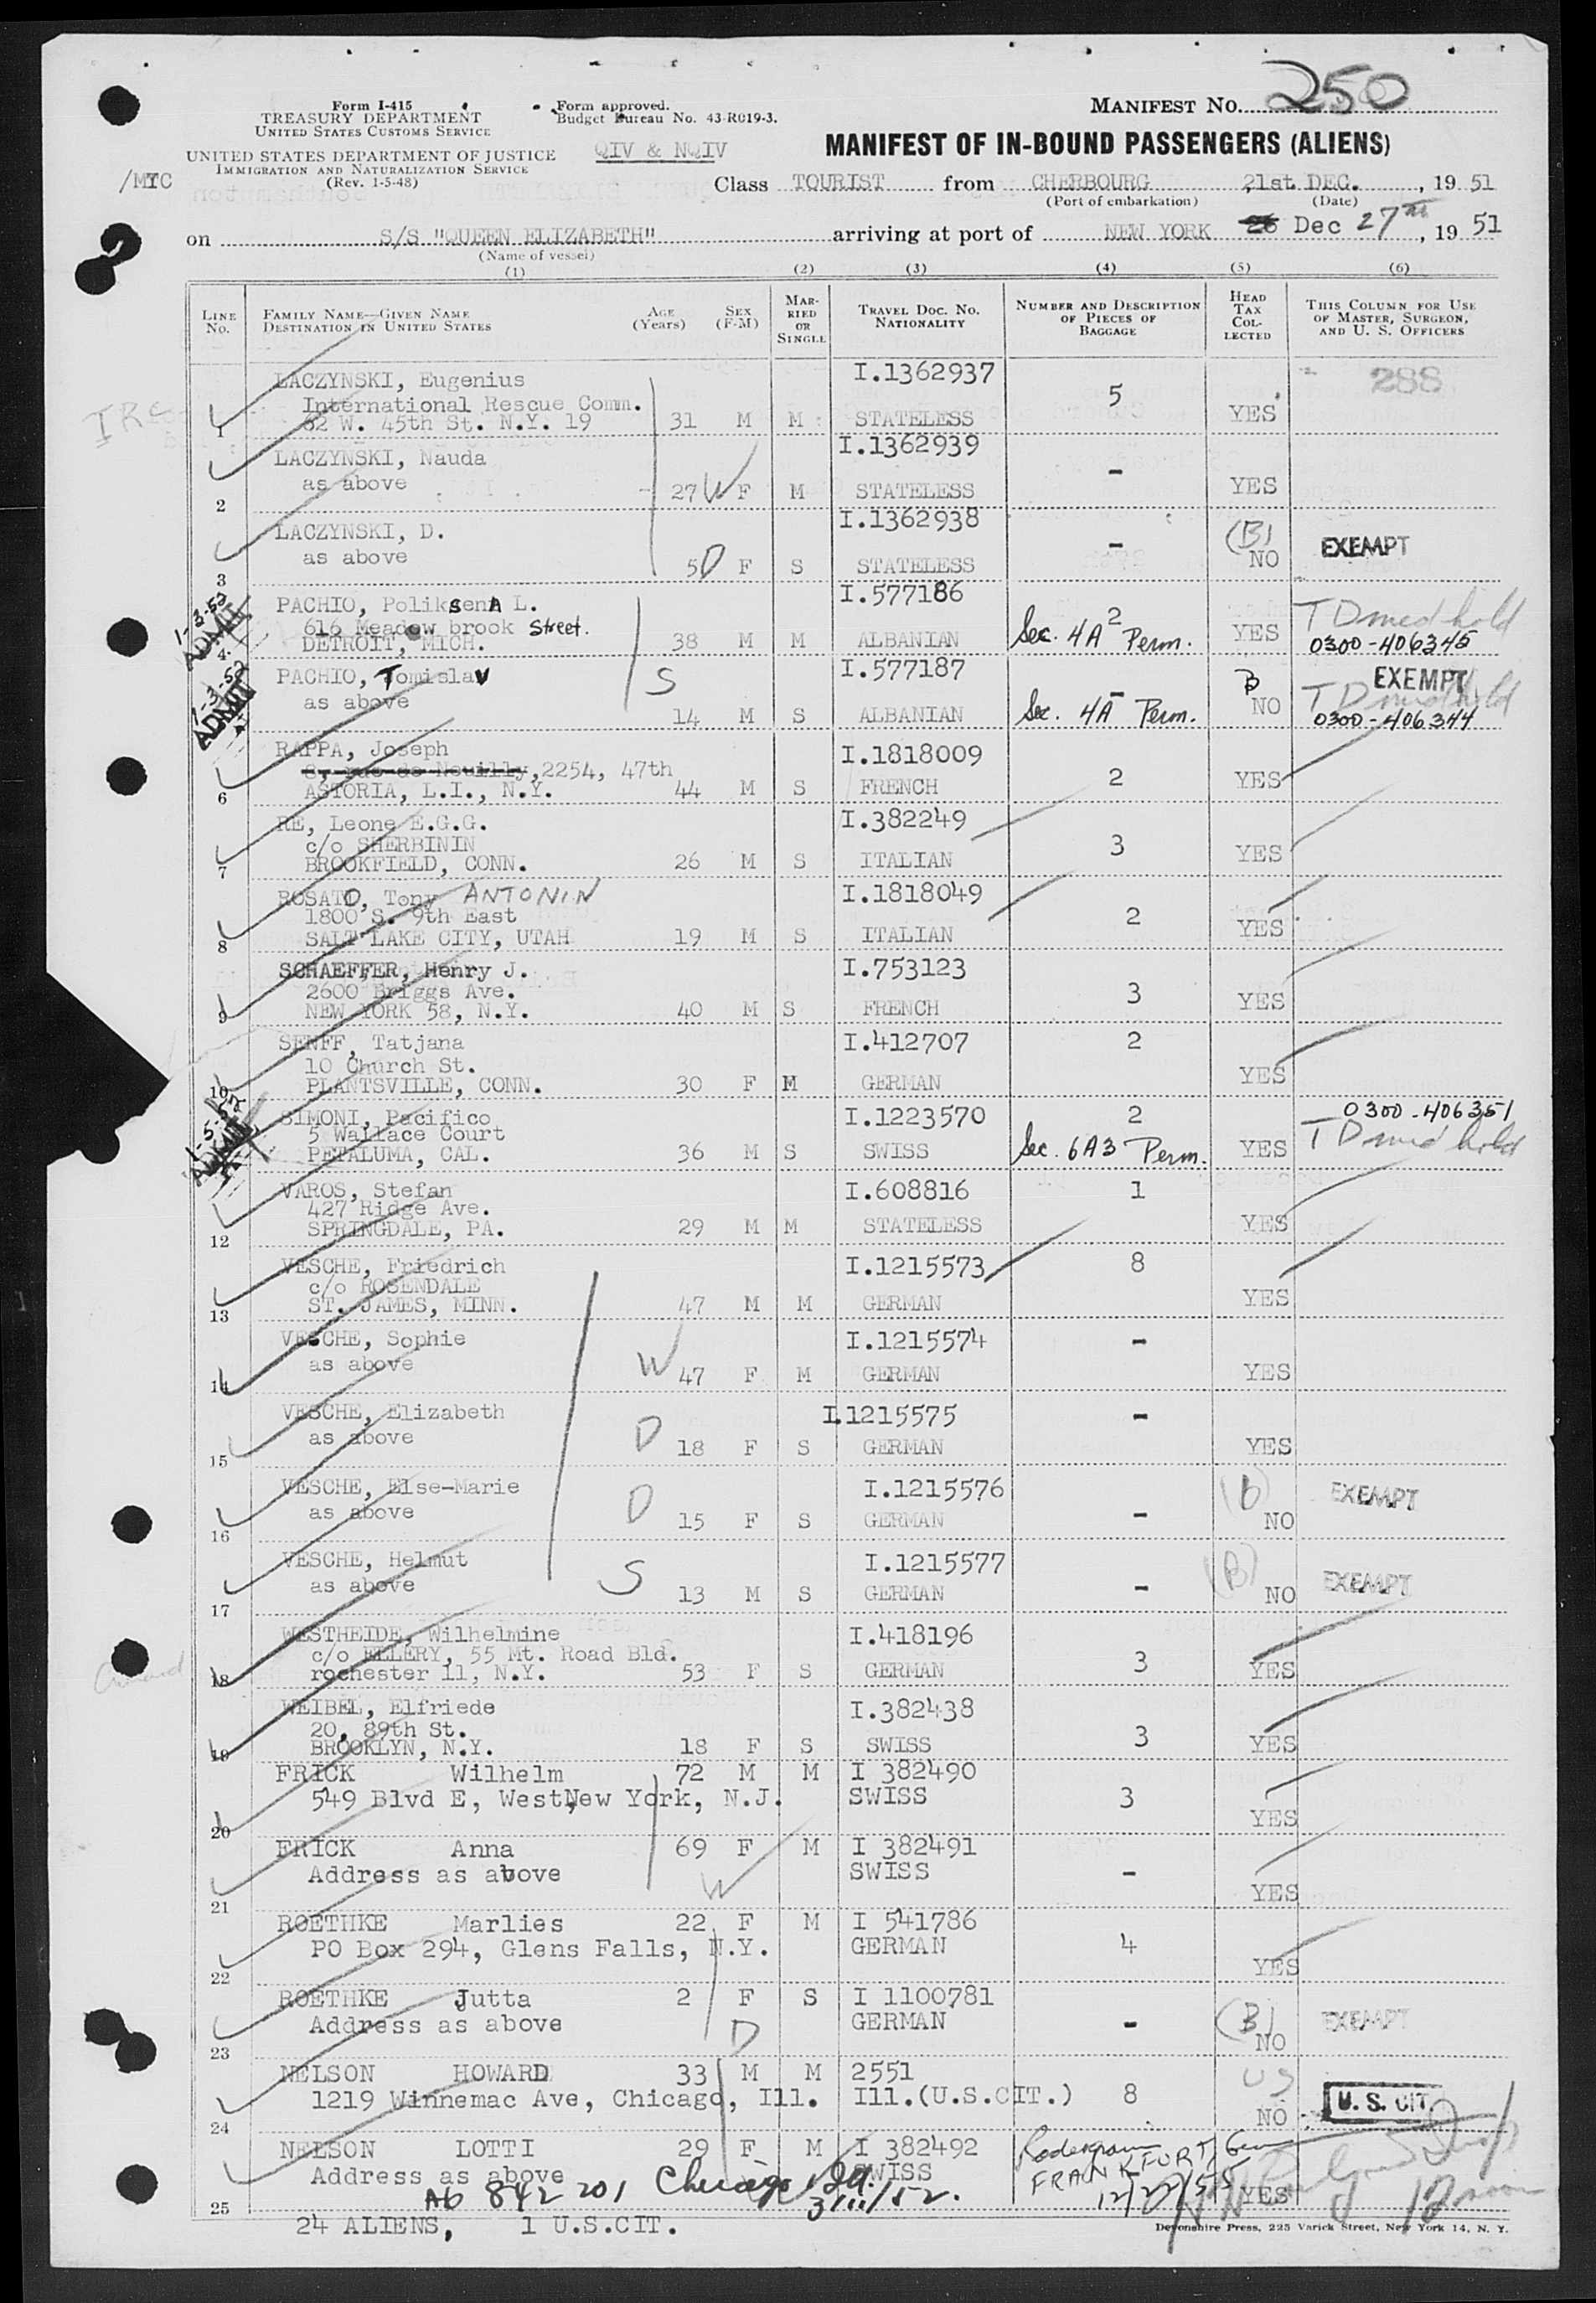 Form I-415
TREASURY DEPARTMENT
UNITED STATES CUSTOMS SERVICE
Form approved.
Budget Bureau No. 43-R019-3.
MANIFEST NO. 250
UNITED STATES DEPARTMENT OF JUSTICE
IMMIGRATION AND NATURALIZATION SERVICE
(Rev. 1-5-48)
QIV & NQIV
MANIFEST OF IN-BOUND PASSENGERS (ALIENS)
/MTC
Class TOURIST from CHERBOURG 21st DEC., 19 51
(Port of embarkation) (Date)
on S/S "QUEEN ELIZABETH" arriving at port of NEW YORK 26 Dec 27th, 19 51
(Name of vessel)
(1) (2) (3) (4) (5) (6)
LINE NO. FAMILY NAME—GIVEN NAME DESTINATION IN UNITED STATES AGE (Years) SEX (F-M) MARRIED OR SINGLE TRAVEL DOC. NO. NATIONALITY NUMBER AND DESCRIPTION OF PIECES OF BAGGAGE HEAD TAX COLLECTED THIS COLUMN FOR USE OF MASTER, SURGEON, AND U. S. OFFICERS
LACZYNSKI, Eugenius I.1362937 5 288
IRC International Rescue Comm.
1 62 W. 45th St. N.Y. 19 31 M M STATELESS YES
LACZYNSKI, Nauda I.1362939 -
as above
2 27 W F M STATELESS YES
LACZYNSKI, D. I.1362938 - (B) EXEMPT
as above
3 5 D F S STATELESS NO
1-3-52 ADMIT PACHIO, PoliksenA L. I.577186 2 T D med hold
616 Meadow brook Street.
4 DETROIT, MICH. 38 M M ALBANIAN Sec. 4A Perm. YES 0300-406345
1-3-52 ADMIT PACHIO, Tomislav S I.577187 - B EXEMPT
as above T D med hold
14 M S ALBANIAN Sec. 4A Perm. NO 0300-406344
RAPPA, Joseph I.1818009
8, rue de Neuilly,2254, 47th 2
6 ASTORIA, L.I., N.Y. 44 M S FRENCH YES
RE, Leone E.G.G. I.382249
c/o SHERBININ 3
7 BROOKFIELD, CONN. 26 M S ITALIAN YES
ROSATO, Tony ANTONIN I.1818049
1800 S. 9th East 2
8 SALT LAKE CITY, UTAH 19 M S ITALIAN YES
SCHAEFFER, Henry J. I.753123
2600 Briggs Ave. 3
9 NEW YORK 58, N.Y. 40 M S FRENCH YES
SENFF, Tatjana I.412707 2
10 Church St.
10 PLANTSVILLE, CONN. 30 F M GERMAN YES
1-5-52 ADMIT SIMONI, Pacifico I.1223570 2 0300-406351
5 Wallace Court T D med hold
PETALUMA, CAL. 36 M S SWISS Sec. 6A3 Perm. YES
VAROS, Stefan I.608816 1
427 Ridge Ave.
12 SPRINGDALE, PA. 29 M M STATELESS YES
VESCHE, Friedrich I.1215573 8
c/o ROSENDALE
13 ST. JAMES, MINN. 47 M M GERMAN YES
VESCHE, Sophie I.1215574 -
as above W
14 47 F M GERMAN YES
VESCHE, Elizabeth I.1215575 -
as above D
15 18 F S GERMAN YES
VESCHE, Else-Marie I.1215576 (B) EXEMPT
as above D -
16 15 F S GERMAN NO
VESCHE, Helmut I.1215577 (B) EXEMPT
as above S -
17 13 M S GERMAN NO
WESTHEIDE, Wilhelmine I.418196
c/o ELLERY, 55 Mt. Road Bld. 3
18 rochester 11, N.Y. 53 F S GERMAN YES
WEIBEL, Elfriede I.382438
20, 89th St. 3
19 BROOKLYN, N.Y. 18 F S SWISS YES
FRICK Wilhelm 72 M M I 382490
549 Blvd E, West New York, N.J. SWISS 3
20 YES
FRICK Anna 69 F M I 382491
Address as above W SWISS -
21 YES
ROETHKE Marlies 22 F M I 541786
PO Box 294, Glens Falls, N.Y. GERMAN 4
22 YES
ROETHKE Jutta 2 F S I 1100781
Address as above D GERMAN - (B) EXEMPT
23 NO
NELSON HOWARD 33 M M 2551 US
1219 Winnemac Ave, Chicago, Ill. Ill.(U.S.CIT.) 8 U. S. CIT.
24 NO
NELSON LOTTI 29 F M I 382492
Address as above SWISS FRANKFURT, Ger
25 A6 842 201 Chicago Ill. 3/11/52. 12/22/55 YES 12 noon
24 ALIENS, 1 U.S.CIT.
Devonshire Press, 225 Varick Street, New York 14, N. Y.